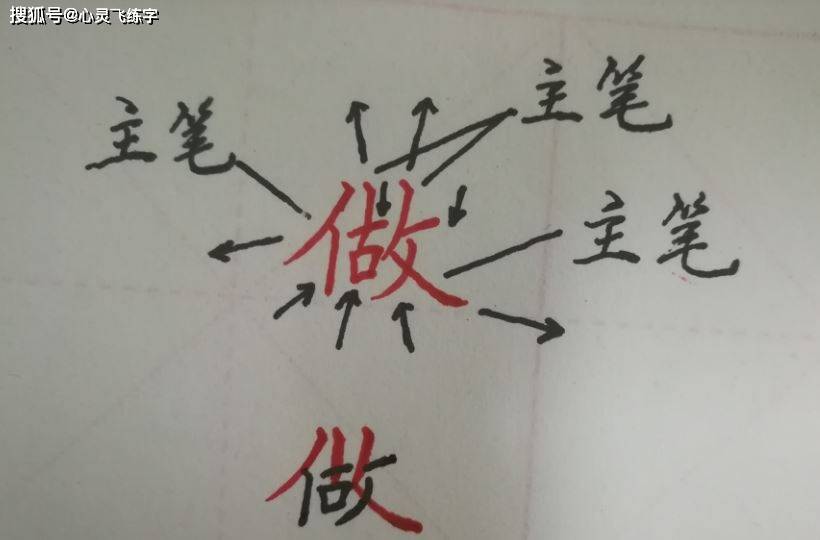 搜狐号@心灵飞练字
主笔
主笔
做
主笔
做